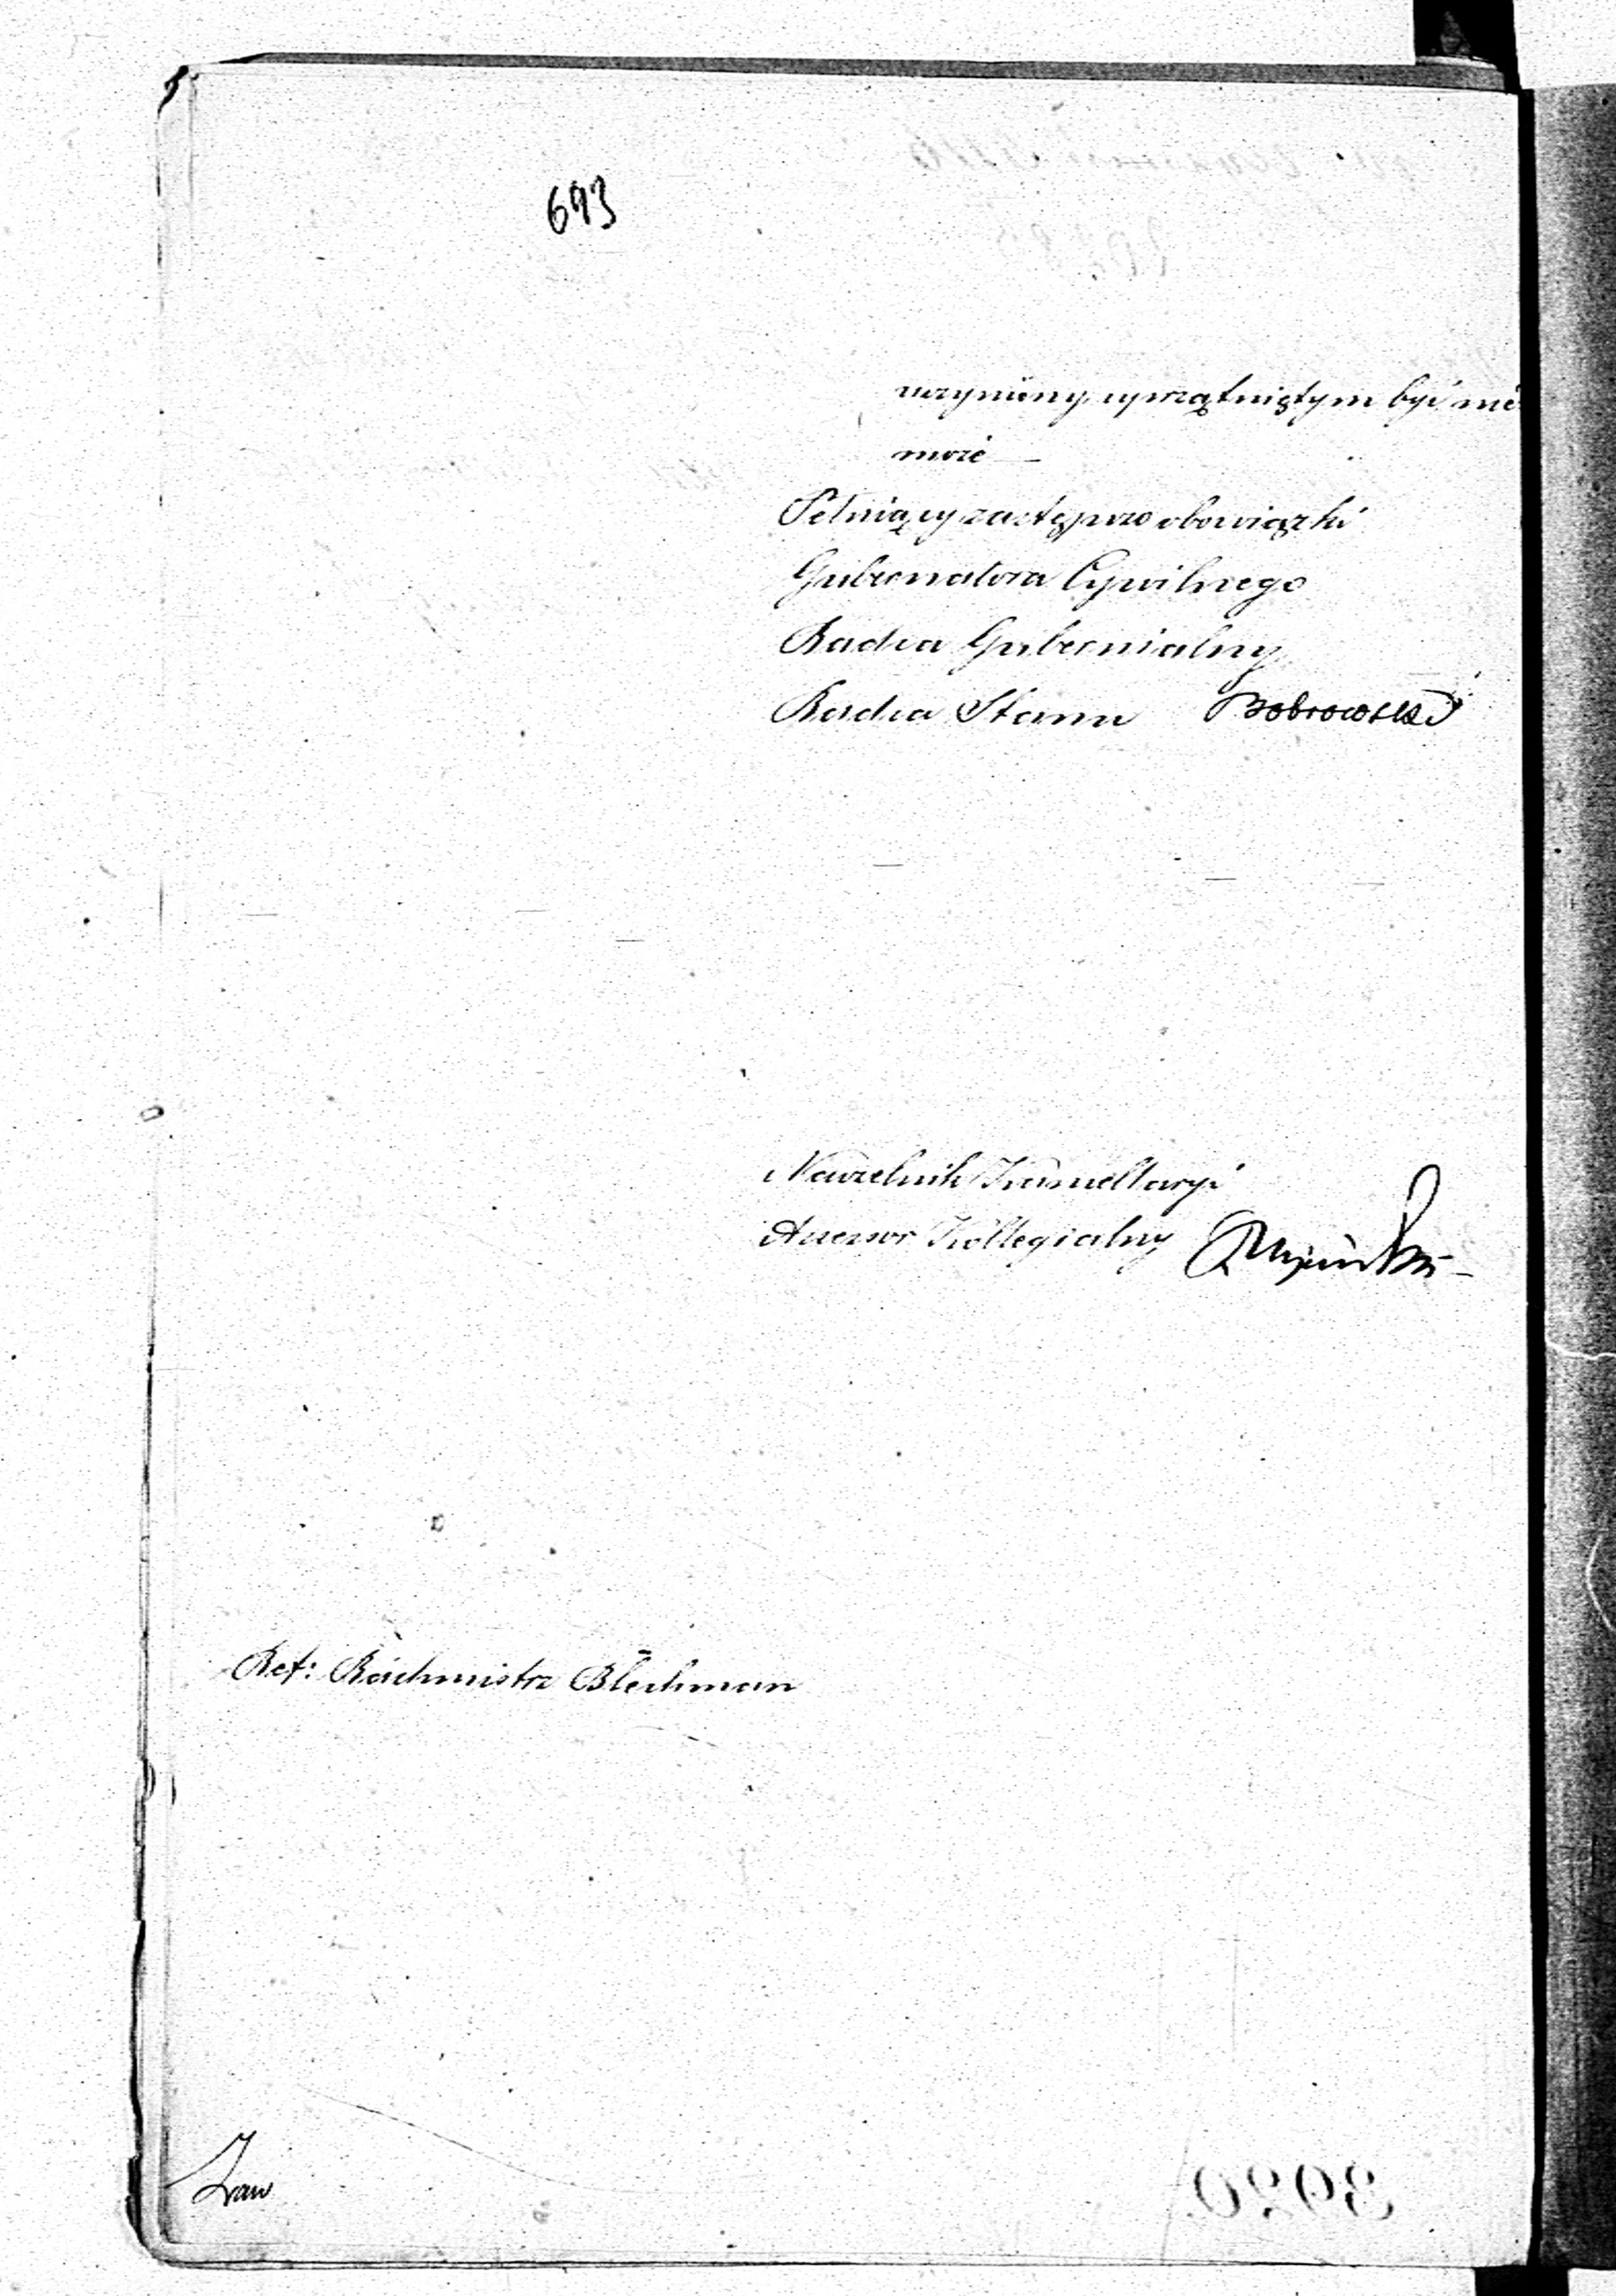 693
uczyniony, uprzątniętym być nie
może —
Pełniący zastępczo obowiązki
Gubernatora Cywilnego
Radca Gubernialny
Radca Stanu Bobrowski
Naczelnik Kancellaryi
Assessor Kollegialny
Ref: Rachmistrz Blechman
3020